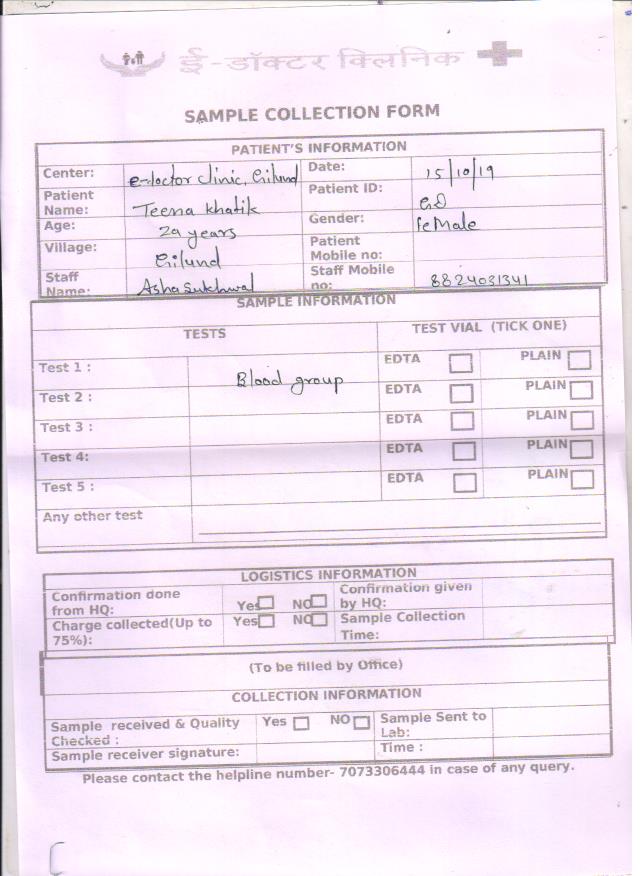 ई-डॉक्टर क्लिनिक
SAMPLE COLLECTION FORM
PATIENT'S INFORMATION
Center: e-doctor clinic, Gilund Date: 15/10/19
Patient Name: Teena Khatik Patient ID:
Age: 29 years Gender: Female
Village: Gilund Patient Mobile no:
Staff Name: Asha Sukhwal Staff Mobile no: 8824031341
SAMPLE INFORMATION
TESTS TEST VIAL (TICK ONE)
Test 1 : Blood group EDTA PLAIN
Test 2 : EDTA PLAIN
Test 3 : EDTA PLAIN
Test 4: EDTA PLAIN
Test 5 : EDTA PLAIN
Any other test
LOGISTICS INFORMATION
Confirmation done from HQ: Yes NO Confirmation given by HQ:
Charge collected(Up to 75%): Yes NO Sample Collection Time:
(To be filled by Office)
COLLECTION INFORMATION
Sample received & Quality Checked : Yes NO Sample Sent to Lab:
Sample receiver signature: Time :
Please contact the helpline number- 7073306444 in case of any query.